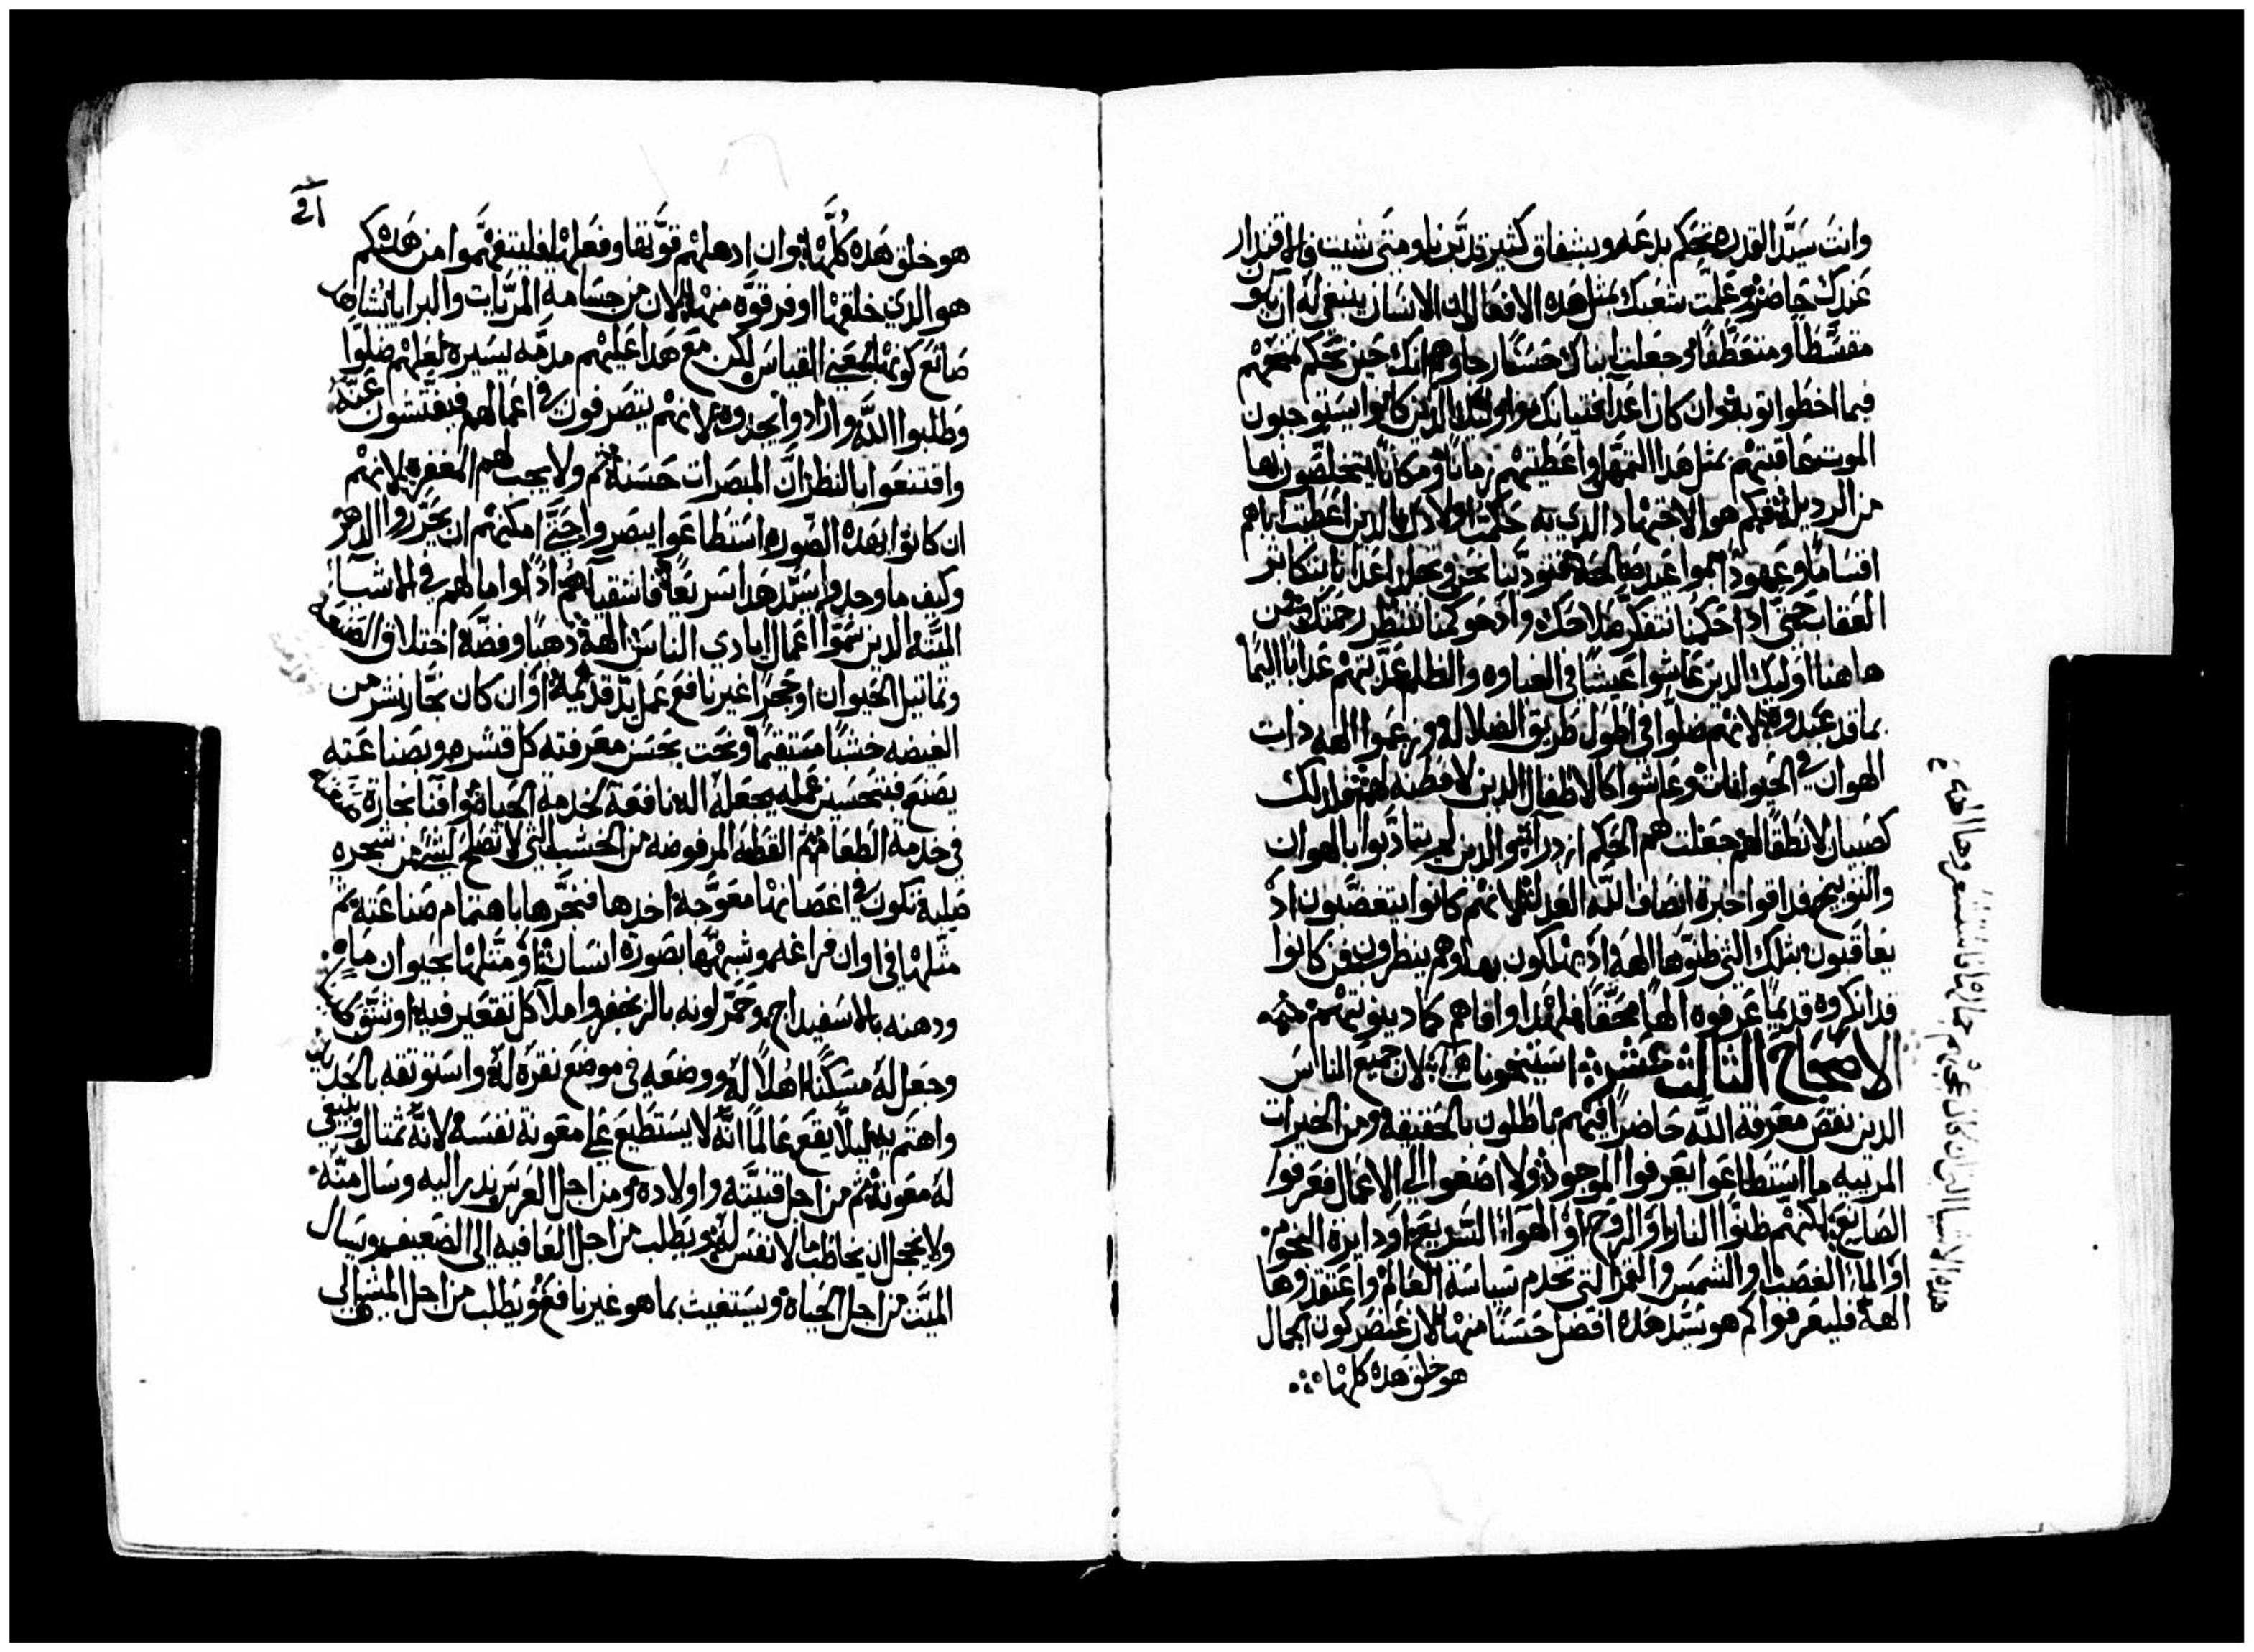 وانت سيد القدره تحكم بدعه وبشفاق كثير تدبرنا ومتى شيت فالاقتدار
عندك حاضر وعلمت شعبك بمثل هذه الافعال ان الانسان ينبغي له ان يكون
مقسطا ومتعطفا وجعلت ابناك حسنا رجاوهم انك حين تحكم تمنحهم
فيما اخطوا توبه وان كان اعدا فتيانك واوليك الذين كانوا يستوجبون
الموت عاقبتهم بمثل هذا التمهل واعطيتهم زمانا ومكانا يتخلصون بها
من الرديله فكم هو الاجتهاد الذي به حكمت اولادك الذين اعطيت اباهم
اقساما وعهودا صالحه فتودبنا نحن وتجلد اعدانا بتكاثر
العقاب حتى ادا حكمنا نتفكر صلاحك وادا حوكمنا ننتظر رحمتك فمن
هاهنا اوليك الذين عاشوا عيشا في الغباوه والظلم عذبتهم عذابا اليما
بما قد عبدوه لانهم ضلوا في اطول طريق الضلاله وزعموا الهه ذات
الهوان في الحيوانات وعاشوا كالاطفال الذين لا فطنه لهم فلذلك
كصبيان لا نطق لهم جعلت لهم الحكم ازدرا والذين لم يتادبوا بالهوان
والتوبيخ فداقوا خبرة انصاف الله العدله لانهم كانوا يتغصبون اد
يعاقبون بتلك التي ظنوها الهه اد يهلكون بها وهم ينظرون من كانوا
قد انكروه قديما عرفوه الها محققا فلهدا وافاهم كما دينونتهم
الاصحاح الثالث عشر لان جميع الناس
الدين نقص معرفة الله حاضرا فيهم باطلون بالحقيقه ومن الخيرات
المرتيه ما استطاعوا يعرفوا الموجود ولا اصغوا الى الاعمال فعرفوا
الصانع لكنهم ظنوا النار او الروح او الهواء السريع او دايرة النجوم
او الماء الغصيب او الشمس والقمر التي تخدم سياسة العالم واعتقدوها
الهه فليعرفوا كم هو سيد هذه افضل حسنا منها لان عنصر كون الجمال
هو خلق هذه كلها
هو خلق هذه كلها وان ادهلهم قوتها وفعلها فليتفهموا من هذه كم
هو الذي خلقها اوفر قوه منها لان من جسامه المريات والبرايا يشاهد
صانع كونها بمعنى القياس لكن مع هذا عليهم مدمه يسيره لعلهم ضلوا
وطلبوا الله وارادوا يجدوه لانهم يتصرفون في اعمالهم فيفتشون عنه
واقتنعوا بالنظر ان المبصرات حسنه ثم ولا يجب لهم المغفره لانهم
ان كانوا بهذه الصوره استطاعوا يبصروا حتى امكنهم ان يحزروا الدهر
وكيف ما وجدوا سيد هذا سريعا فاشقياهم ادا اوامالهم في الاشيا
الميته الدين سموا اعمال ايادي الناس الهه دهبا وفضه اختلاق الصنعه
وتماتيل الحيوان او حجرا غير نافع عمل يد قديمه او ان كان نجار نشر من
الغيضه خشبا مستقيما ونحت بحسن معرفته كل قشره وبصناعته
يصنع فتحسين عمله يجعله اله نافعه لخدمه الحياه
في خدمه الطعام ثم القطعه المرفوضه من الخشب التي لا تصلح لشى من شجره
صلبه تكون في اغصانها معوجه اخدها فنجرها باهتمام صناعته ثم
مثلها في اوان فراغه وشبهها بصورة انسان او متلها بحيوان ما
ودهنه بالاسفيداج وحمر لونه بالزنجفر واملا كل تقعير فيه
وجعل له مسكنا اهلا له ووضعه في موضع نقره له واستوثقه بالحديد
واهتم به ليلا يقع عالما انه لا يستطيع على معونة نفسه لانه تمثال وينبغي
له معونه ثم من اجل قنيته واولاده ومن اجل العرس يندر اليه وسال منه
ولا يخجل ان يخاطب ما لا نفس له ويطلب من اجل العافيه الى الضعيف ويسال
الميت من اجل الحياه ويستغيث بما هو غير نافع ويطلب من اجل المشي الى